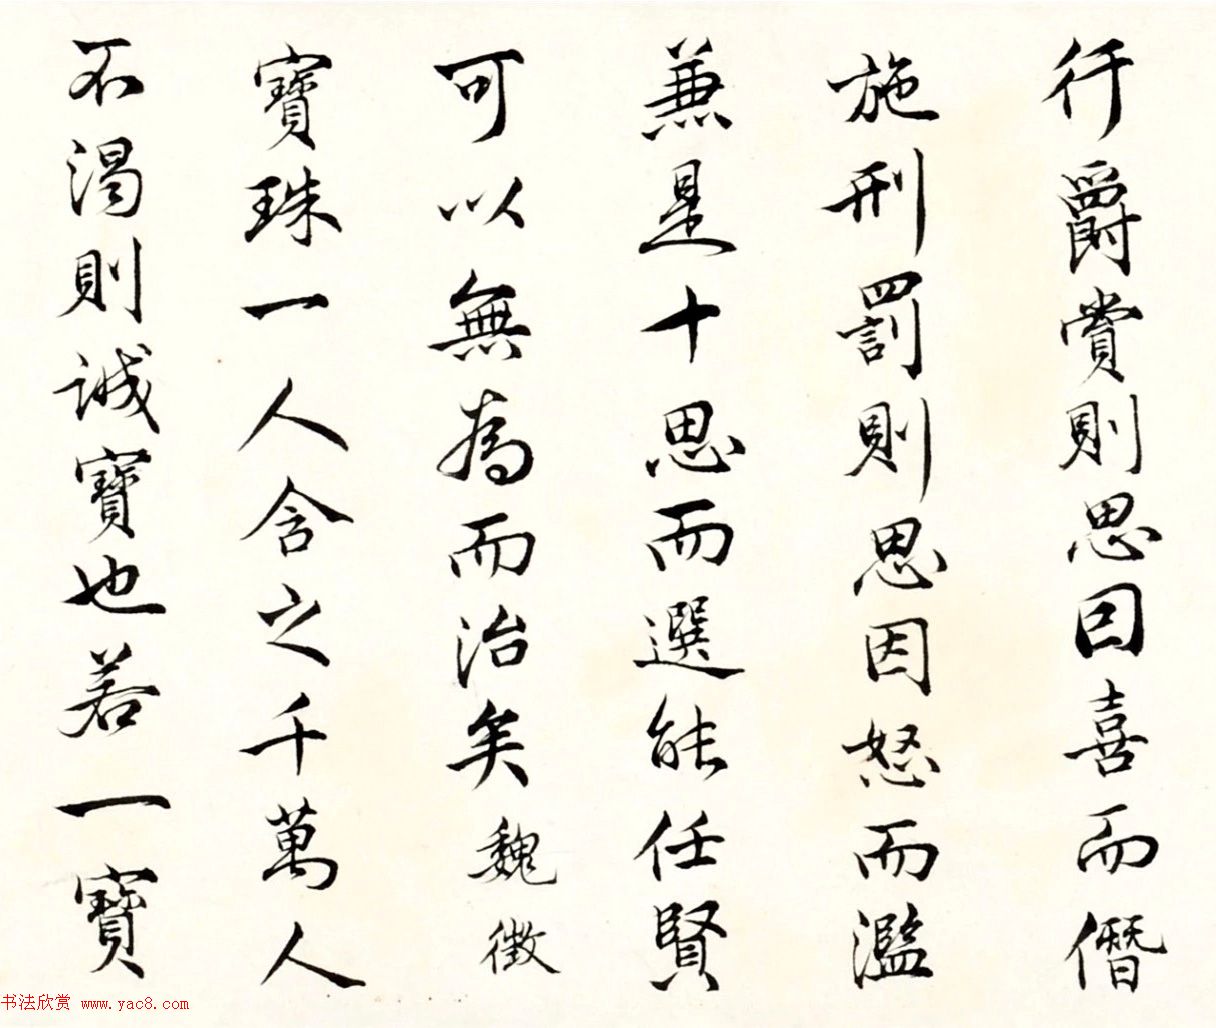 行爵賞則思曰喜而僭
施刑罰則思因怒而濫
兼是十思而選能任賢
可以無為而治矣魏徵
寶珠一人含之千萬人
不渴則誠寶也若一寶
书法欣赏 www.yac8.com